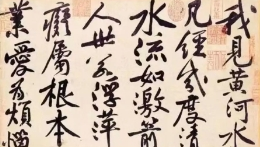 我見黄河水
凡經幾度清
水流如激箭
人世若浮萍
癡屬根本
業愛為煩惱